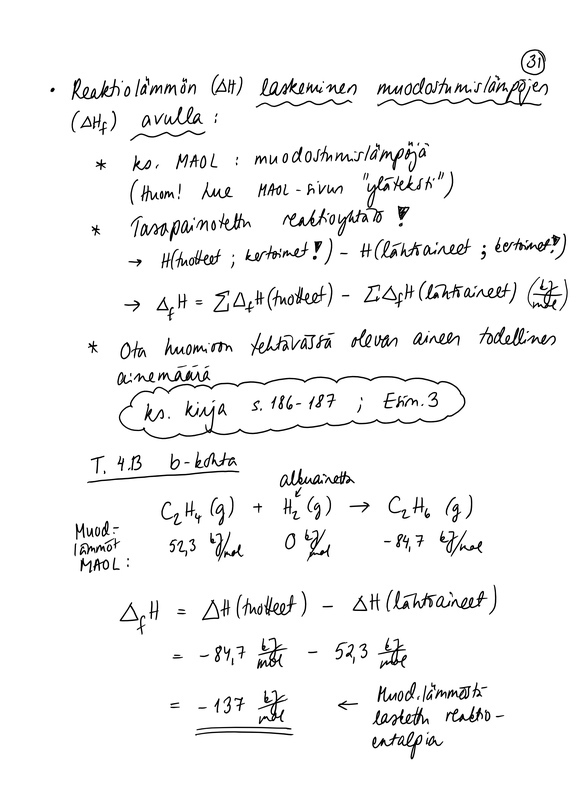 31
• Reaktiolämmön (ΔH) laskeminen muodostumislämpöjen
(ΔHf) avulla :
* ks. MAOL : muodostumislämpöjä
(Huom! Lue MAOL-sivun "yläteksti")
* Tasapainotettu reaktioyhtälö !
→ H(tuotteet ; kertoimet!) – H(lähtöaineet ; kertoimet!)
→ ΔfH = ΣΔfH(tuotteet) – ΣΔfH(lähtöaineet) (kJ/mol)
* Ota huomioon tehtävässä olevan aineen todellinen
ainemäärä
ks. kirja s. 186-187 ; Esim. 3
T. 4.13 b-kohta
alkuainetta
C2H4 (g) + H2 (g) → C2H6 (g)
Muod.-
lämmöt
MAOL :
52,3 kJ/mol 0 kJ/mol -84,7 kJ/mol
ΔfH = ΔH(tuotteet) – ΔH(lähtöaineet)
= -84,7 kJ/mol – 52,3 kJ/mol
= -137 kJ/mol ← Muod.lämmöistä
laskettu reaktio-
entalpia